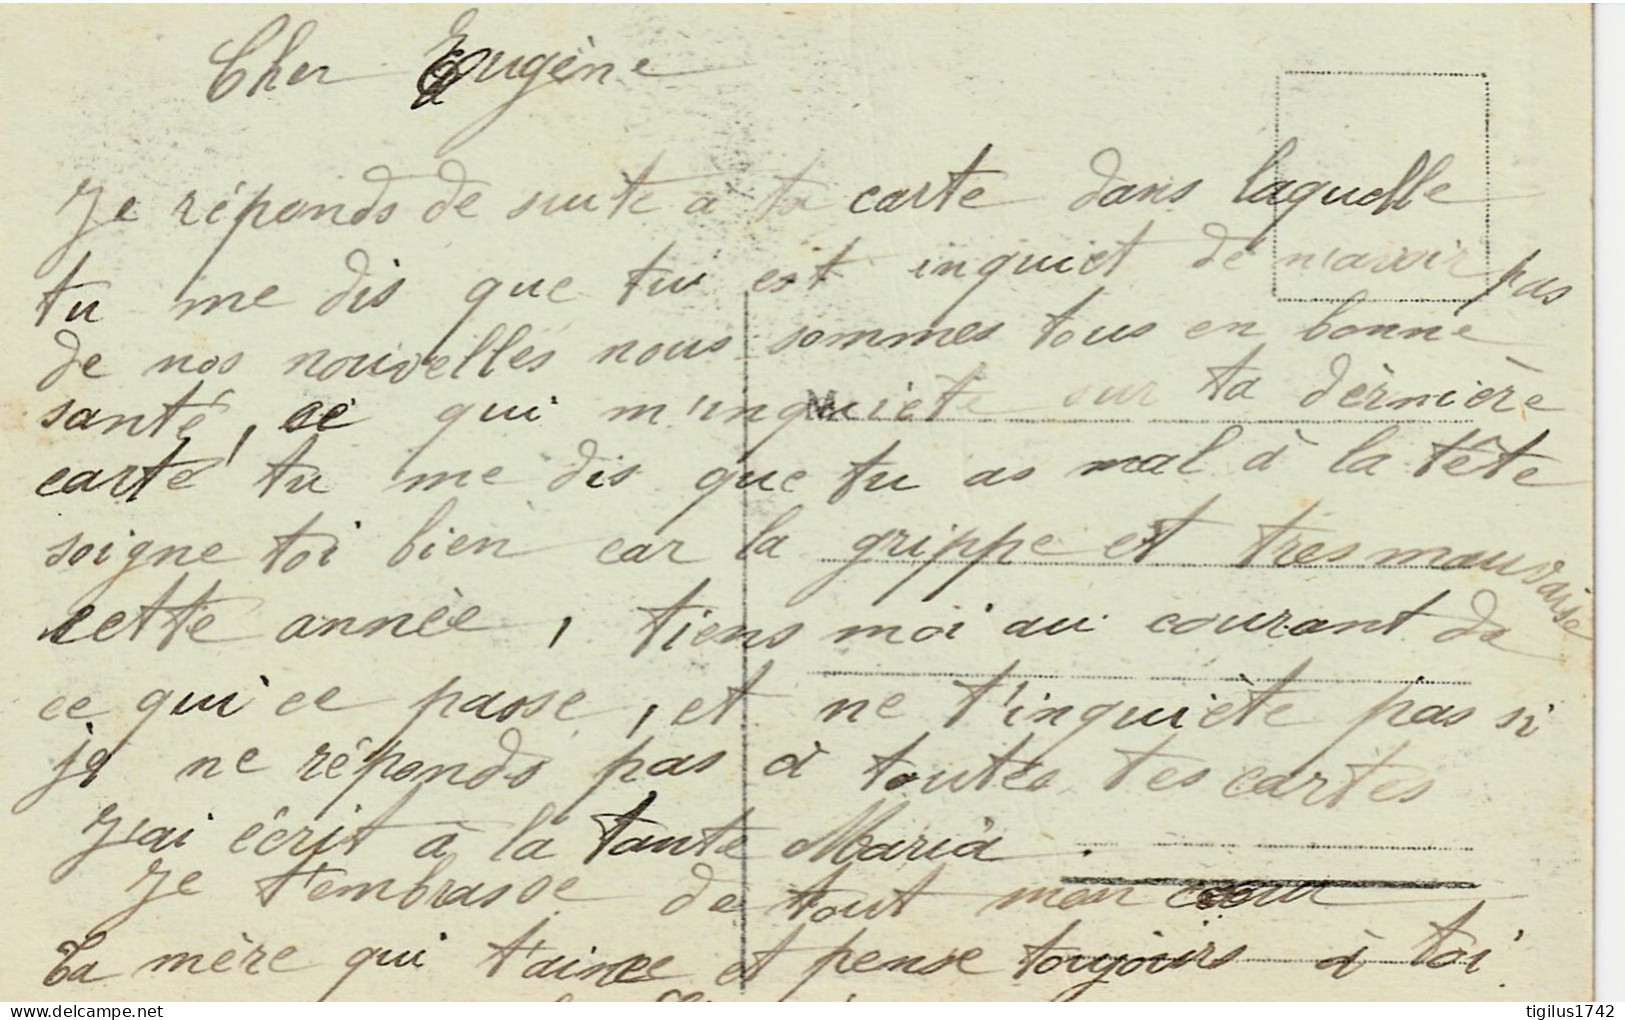 Cher Eugène
Je réponds de suite à ta carte dans laquelle
tu me dis que tu est inquiet de n'avoir pas
de nos nouvelles nous sommes tous en bonne
santé, ce qui m'inquiète sur ta dèrnière
carte tu me dis que tu as mal à la tête
soigne toi bien car la grippe et tres mauvaise
cette année, tiens moi au courant de
ce qui ce passe, et ne t'inquiète pas si
je ne réponds pas à toutes tes cartes
J'ai écrit à la tante Maria.
Je t'embrasse de tout mon cœur
Ta mère qui t'aime et pense toujours à toi
tigilus1742